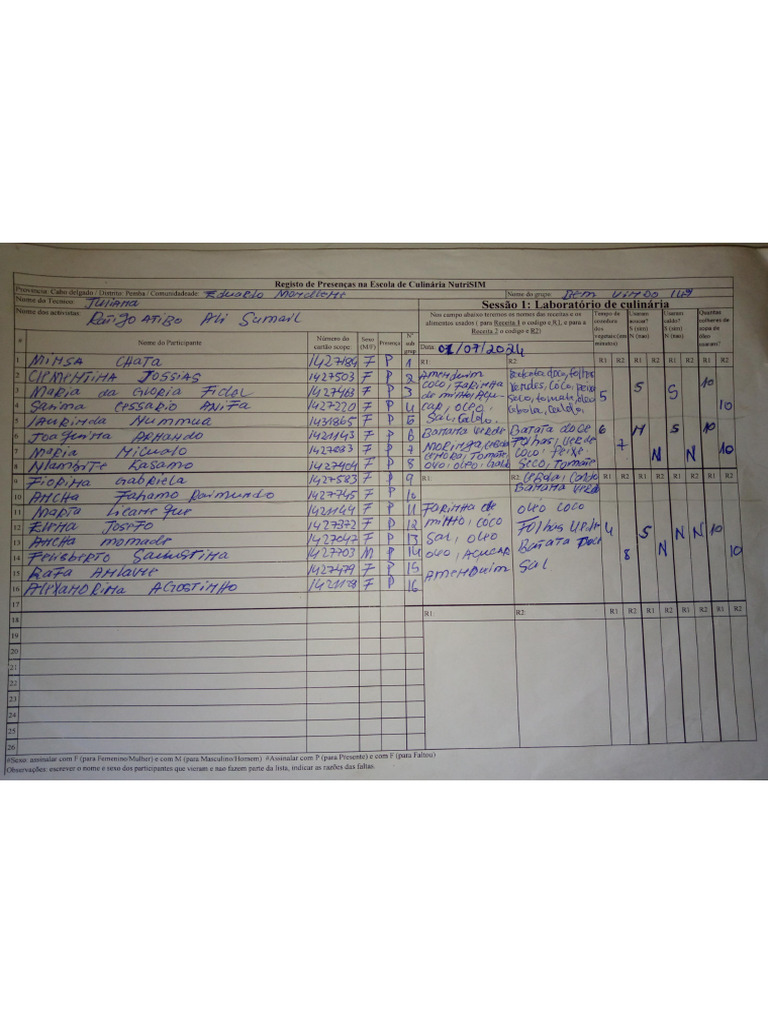 Registo de Presenças na Escola de Culinária NutriSIM
Provincia: Cabo delgado / Distrito: Pemba / Comunidadeade: Eduardo Mondlane Nome do grupo: BEM VINDO
Nome do Tecnico: Juliana Sessão 1: Laboratório de culinária
Nome dos activistas: Ali Sumail
Nos campo abaixo teremos os nomes das receitas e os alimentos usados ( para Receita 1 o codigo e R1, e para a Receita 2 o codigo e R2)
Tempo de cozedura dos vegetais (em minutos)
Usaram açucar? S (sim) N (nao)
Usaram caldo? S (sim) N (nao)
Quantas colheres de sopa de óleo usaram?
# Nome do Participante Número do cartão scope: Sexo (M/F) Presença Nº sub grup Data: 01/07/2024
R1: R2: R1 R2 R1 R2 R1 R2 R1 R2
1 MIMSA CHATA 1427184 F P 1
2 CLEMENTINA JOSSIAS 1427503 F P 2
3 MARIA da GLORIA FIDOL 1427463 F P 3
4 SANIMA CESSARIO ANIFA 1427220 F P 4
5 LAURINDA NUMMUA 1431865 F P 5
6 JOAQUINA ARMANDO 1421143 F P 6
7 MARIA MICUALO F P 7
8 KASAMO 1427404 F P 8
9 FIORINA Gabriela 1427583 F P 9
10 ANCHA FAHAMO RAIMUNDO 1427745 F P 10
11 MARTA 1427144 F P 11
12 ELENA JOSEFO 1427372 F P 12
13 ANCHA momade 1427047 F P 13
14 FELISBERTO 1427703 M P 14
15 RAFA 1427479 F P 15
16 ALEXANDRINA AGOSTINHO F P 16
17
18
19
20
21
22
23
24
25
26
AMENDUIM
COCO, FARINHA
de milho, AÇU-
CAR, OLEO,
SAL, Caldo.
Batata doce, folhas
Verdes, COCO, peixe
Seco, tomate, oleo
Cebola, Caldo.
5 S S 10 10
BANANA VERDE
MORINGA, CEBOLA
CENORA, TOMATE
OVO, OLEO, CALDO
BATATA DOCE
FOLHAS, VERDE
COCO, PEIXE
SECO, TOMATE
CEBOLA, CALDO
BANANA VERDE
6 7 N S N 10 10
R1: R2: R1 R2 R1 R2 R1 R2 R1 R2
FARINHA de
MILHO, COCO
SAL, OLEO
OVO, AÇUCAR
AMENDUIM
OLEO COCO
FOLHAS VERDE
BATATA DOCE
SAL
4 8 S N N N 10 10
R1: R2: R1 R2 R1 R2 R1 R2 R1 R2
#Sexo: assinalar com F (para Femenino/Mulher) e com M (para Masculino/Homem) #Assinalar com P (para Presente) e com F (para Faltou)
Observações: escrever o nome e sexo dos participantes que vieram e nao fazem parte da lista, indicar as razões das faltas.